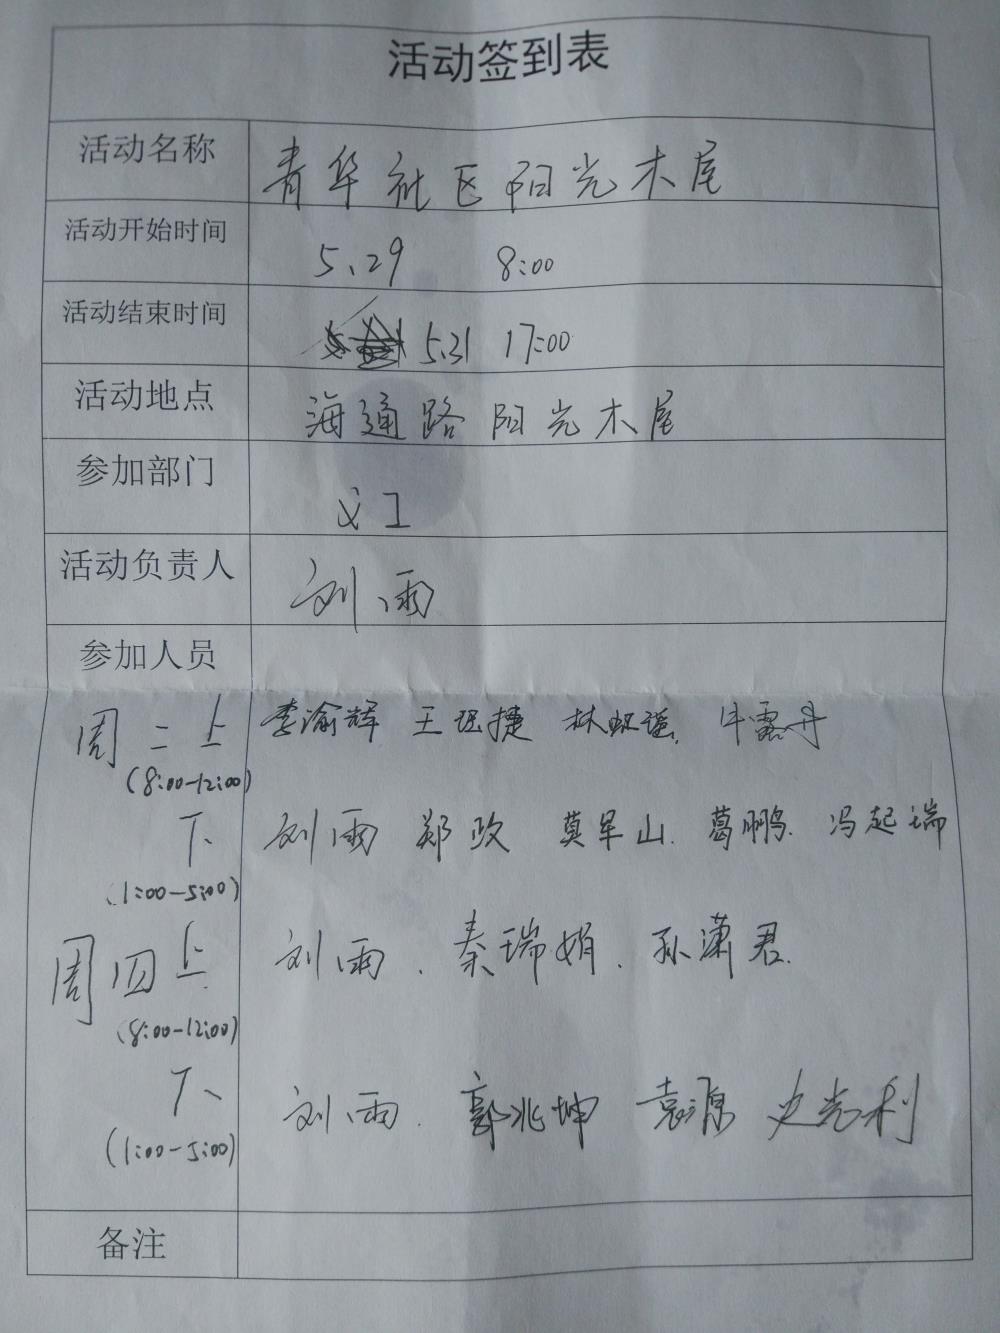 活动签到表
活动名称 青华社区阳光木屋
活动开始时间 5.29 8:00
活动结束时间 5.31 17:00
活动地点 海通路阳光木屋
参加部门 义工
活动负责人 刘雨
参加人员
周二上 李渝辉 王珽捷 林虹谣. 牛露丹
(8:00-12:00)
下 刘雨 郑政 莫军山. 葛鹏. 冯起瑞
(1:00-5:00)
周四上 刘雨. 秦瑞娟. 孙潇君.
(8:00-12:00)
下 刘雨. 郭兆坤 袁源 史光利
(1:00-5:00)
备注